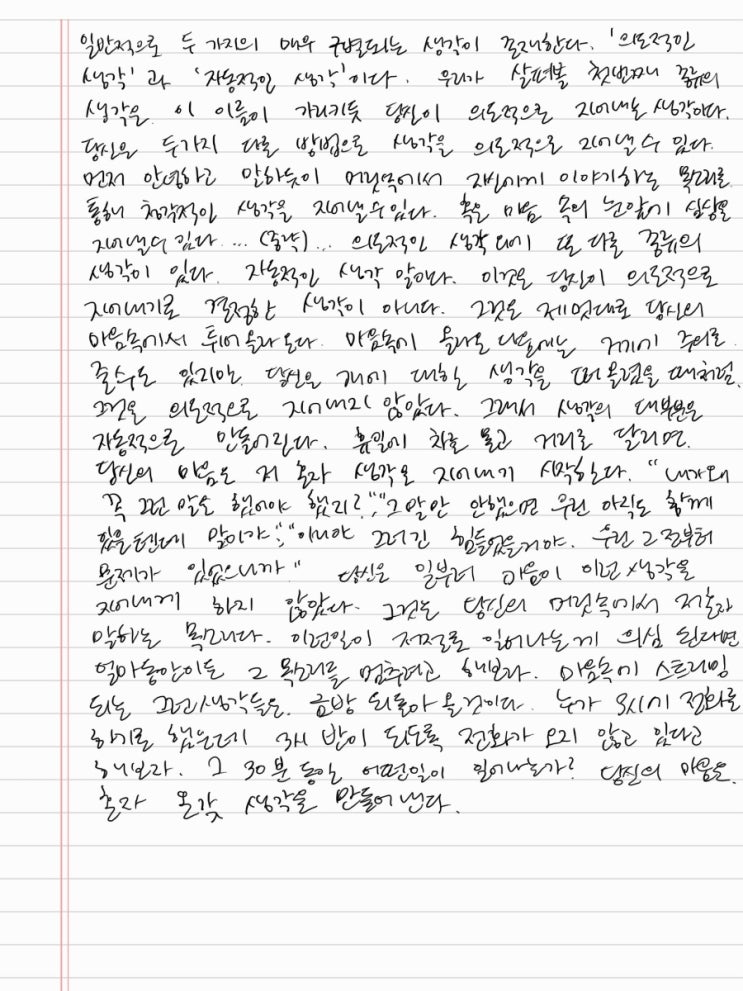 일반적으로 두 가지의 매우 구별되는 생각이 존재한다. '의도적인
생각'과 '자동적인 생각'이다. 우리가 살펴볼 첫번째 종류의
생각은 이 이름이 가리키듯 당신이 의도적으로 지어내는 생각이다.
당신은 두가지 다른 방법으로 생각을 의도적으로 지어낼 수 있다.
먼저 안녕하고 말하듯이 머릿속에서 자신에게 이야기하는 목소리를
통해 청각적인 생각을 지어낼 수 있다. 혹은 마음 속의 눈앞에 심상을
지어낼 수 있다 ... (중략) ... 의도적인 생각 외에 또 다른 종류의
생각이 있다. 자동적인 생각 말이다. 이것은 당신이 의도적으로
지어내기로 결정한 생각이 아니다. 그것은 제멋대로 당신의
마음속에서 튀어 올라 온다. 마음속에 올라온 다음에는 거기에 주의를
줄 수도 있지만, 당신은 개에 대한 생각을 떠올렸을 때처럼
그것을 의도적으로 지어내지 않았다. 그래서 생각의 대부분은
자동적으로 만들어진다. 휴일에 차를 몰고 거리를 달리면
당신의 마음은 저 혼자 생각을 지어내기 시작한다. "내가 왜
꼭 그런 말을 했어야 했지?" "그 말만 안했으면 우린 아직도 함께
있을텐데 말이야." "아니야 그러긴 힘들었을거야. 우린 그 전부터
문제가 있었으니까" 당신은 일부러 마음이 이런 생각을
지어내게 하지 않았다. 그것은 당신의 머릿속에서 저혼자
말하는 목소리다. 이런일이 저절로 일어나는게 의심 된다면
얼마동안이든 그 목소리를 멈추려고 해보라. 마음속에 스트리밍
되는 그런 생각들은 금방 되돌아 올것이다. 누가 3시에 전화를
하기로 했는데 3시 반이 되도록 전화가 오지 않고 있다고
해보라. 그 30분 동안 어떤일이 일어나는가? 당신의 마음은
혼자 온갖 생각을 만들어 낸다.